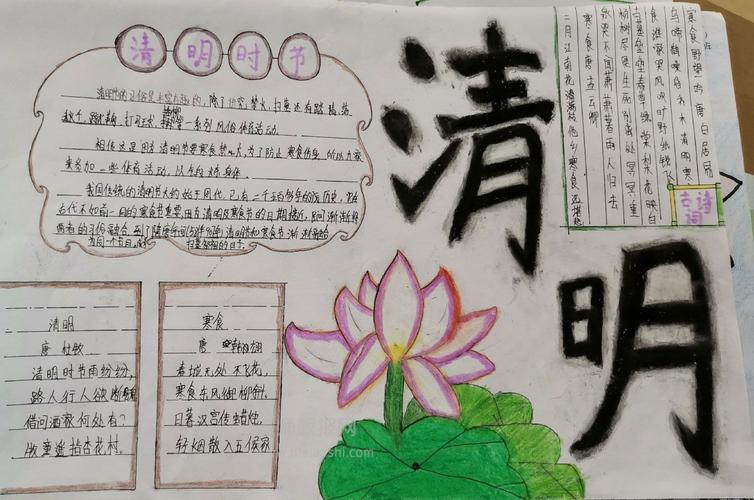 清明时节
清明节的习俗是丰富有趣的,除了讲究禁火、扫墓还有踏青、荡
秋千、蹴鞠、打马球、插柳等一系列风俗体育活动。
相传这是因为清明节要寒食禁火,为了防止寒食伤身,所以大家
来参加一些体育活动,以锻炼身体。
我国传统的清明节大约始于周代,已有二千五百多年的历史,
古代不如前一日的寒食节重要,因为清明及寒食节的日期接近,民间渐渐将
两者的习俗融合,到了隋唐年间,清明节和寒食节渐渐融合
为同一个节日,
扫墓祭祖的日子
清明
唐 杜牧
清明时节雨纷纷,
路人行人欲断魂
借问酒家何处有?
牧童遥指杏花村。
寒食
唐 韩翃
春城无处不飞花,
寒食东风御柳斜。
日暮汉宫传蜡烛,
轻烟散入五侯家
清明
寒食野望吟 唐 白居易
乌啼鹊噪昏乔木 清明寒
食谁家哭 风吹旷野纸钱飞
古墓垒垒春草绿 棠梨花映白
杨树 尽是生死别离处 冥冥重
泉哭不闻 萧萧暮雨人归去
寒食 唐 孟云卿
二月江南花满枝 他乡寒食远堪悲
古诗词